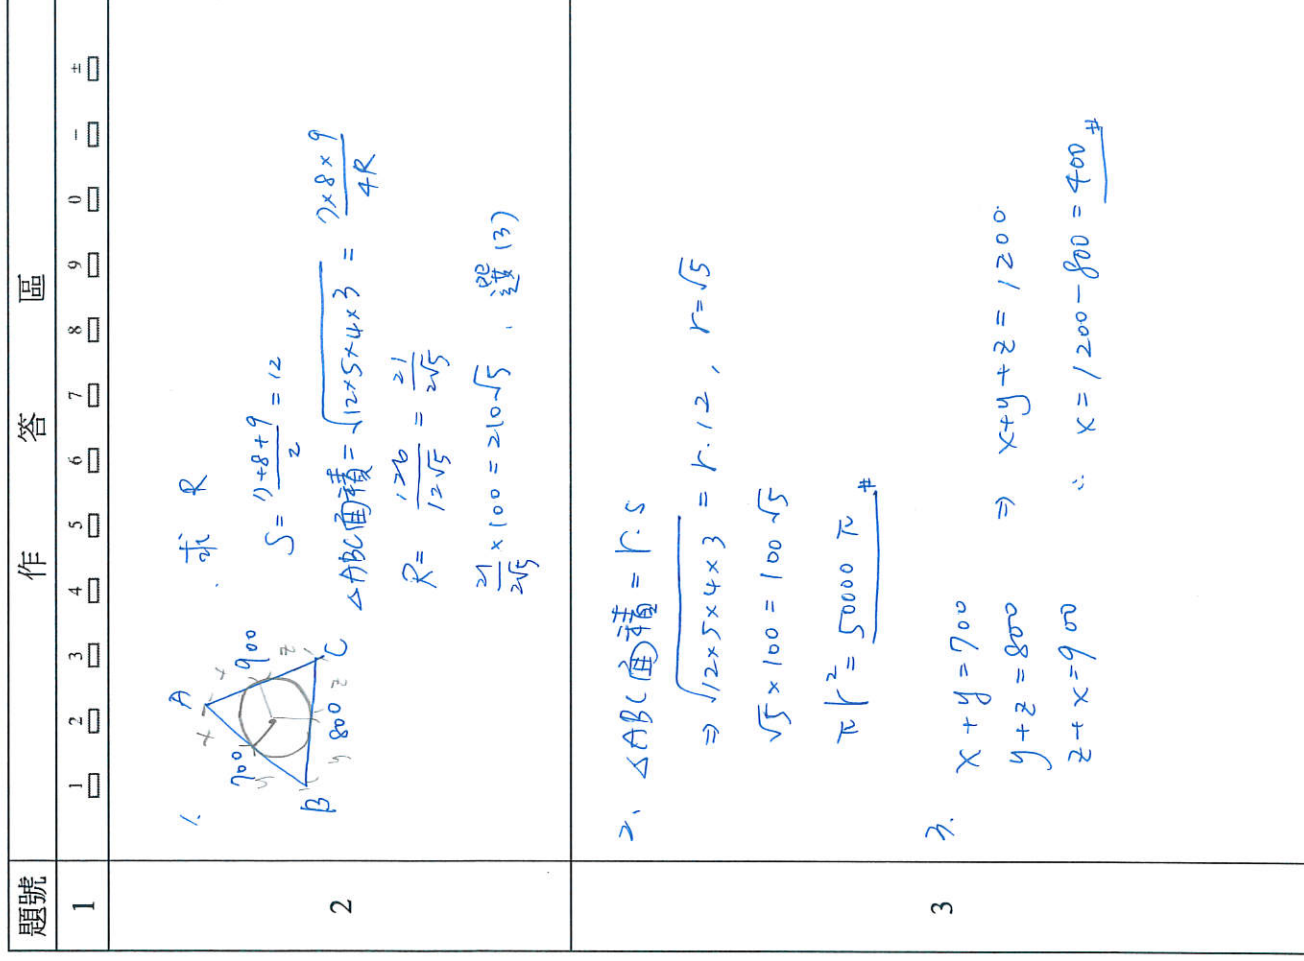 題號 作答區
1 1 2 3 4 5 6 7 8 9 0 − ±
2
1.
A
B
C
700
800
900
x x
y y
z z
求 R
S = (7+8+9)/2 = 12
△ABC面積 = √(12×5×4×3) = (7×8×9)/(4R)
R = 126/(12√5) = 21/(2√5)
21/(2√5) × 100 = 210√5 , 選 (3)
3
2. △ABC面積 = r.s
⇒ √(12×5×4×3) = r.12 , r=√5
√5 × 100 = 100√5
πr² = 50000π #
3.
x+y=700
y+z=800 ⇒ x+y+z=1200
z+x=900 ∴ x=1200−800=400 #